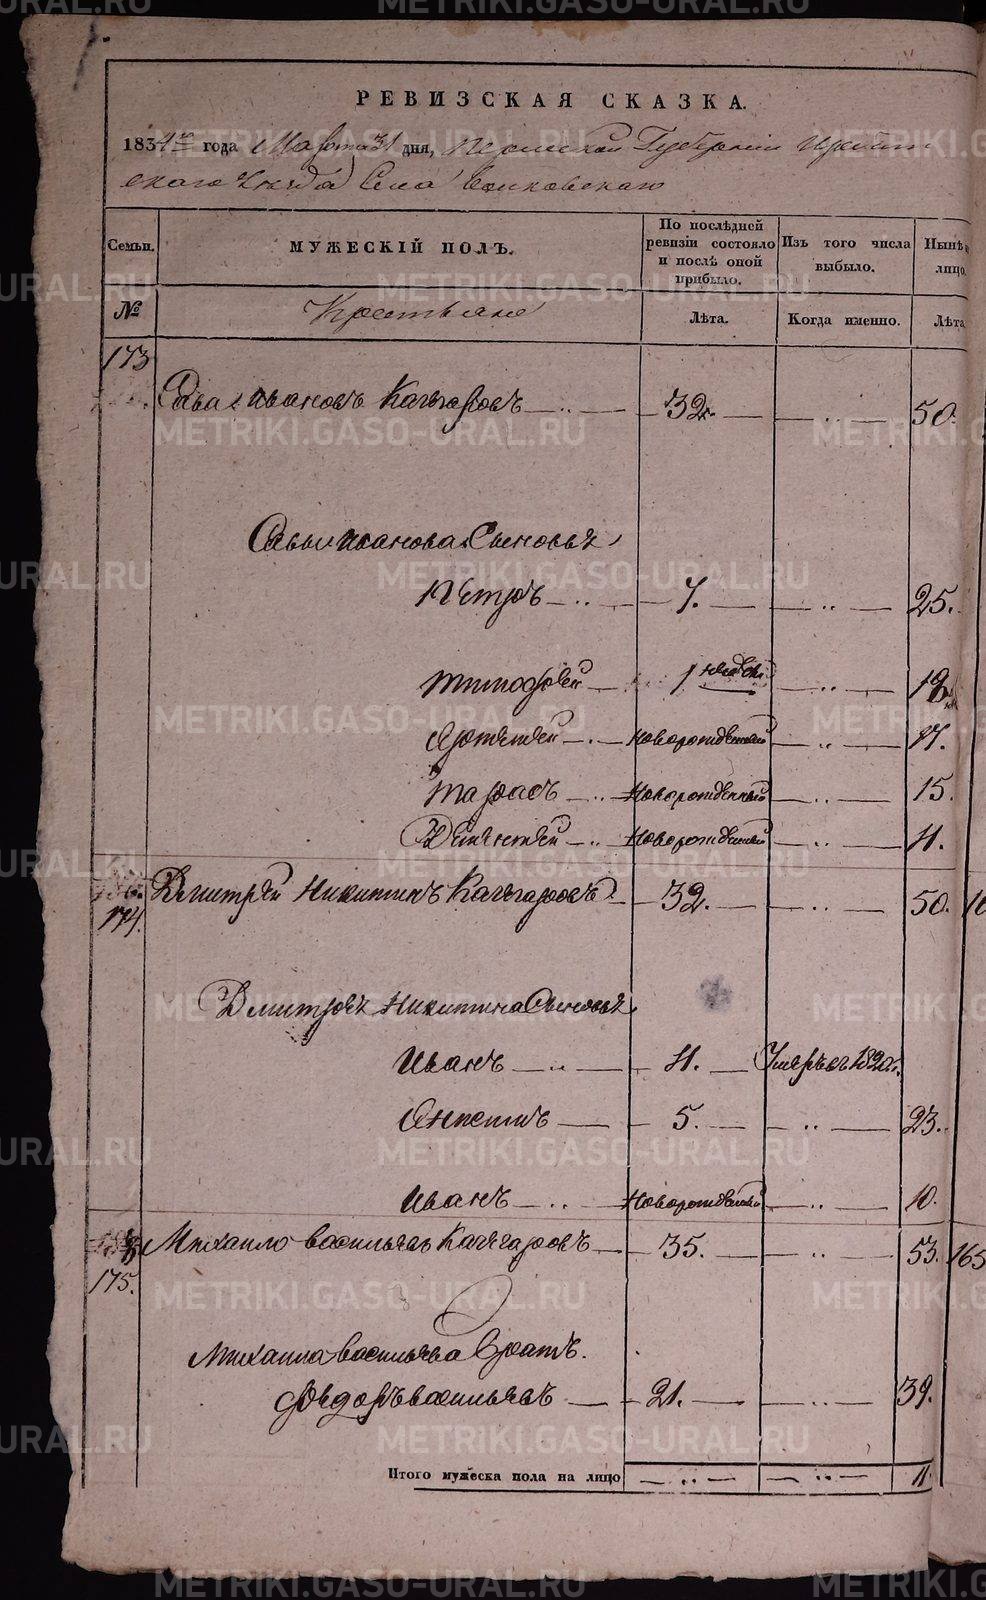 РЕВИЗСКАЯ СКАЗКА.
1834го года Марта 31 дня, Пермской Губернии Ирбит
скаго Уезда Села Волковскаго
Семьи. МУЖЕСКІЙ ПОЛЪ. По послѣдней ревизіи состояло и послѣ оной прибыло. Изъ того числа выбыло. Нынѣ
лицо.
№ Крестьяне Лѣта. Когда именно. Лѣта
173
Савва Ивановъ Качгаровъ 32. 50.
Саввы Иванова Сыновья
Петръ 7. 25.
Тимофей 1 19
Артемей Новорожденный 17.
Тарасъ Новорожденный 15.
Дементей Новорожденный 11.
174. Дмитрей Никитинъ Качгаровъ 32. 50.
Дмитрея Никитина Сыновья
Иванъ 11. Умеръ въ 1820г.
Анисимъ 5. 23.
Иванъ Новорожденный 10.
Михайло Васильевъ Качгаровъ 35. 53. 165
175.
Михаила Васильева Братъ.
Федоръ Васильевъ 21. 39.
Итого мужеска пола на лицо 11.
METRIKI.GASO-URAL.RU